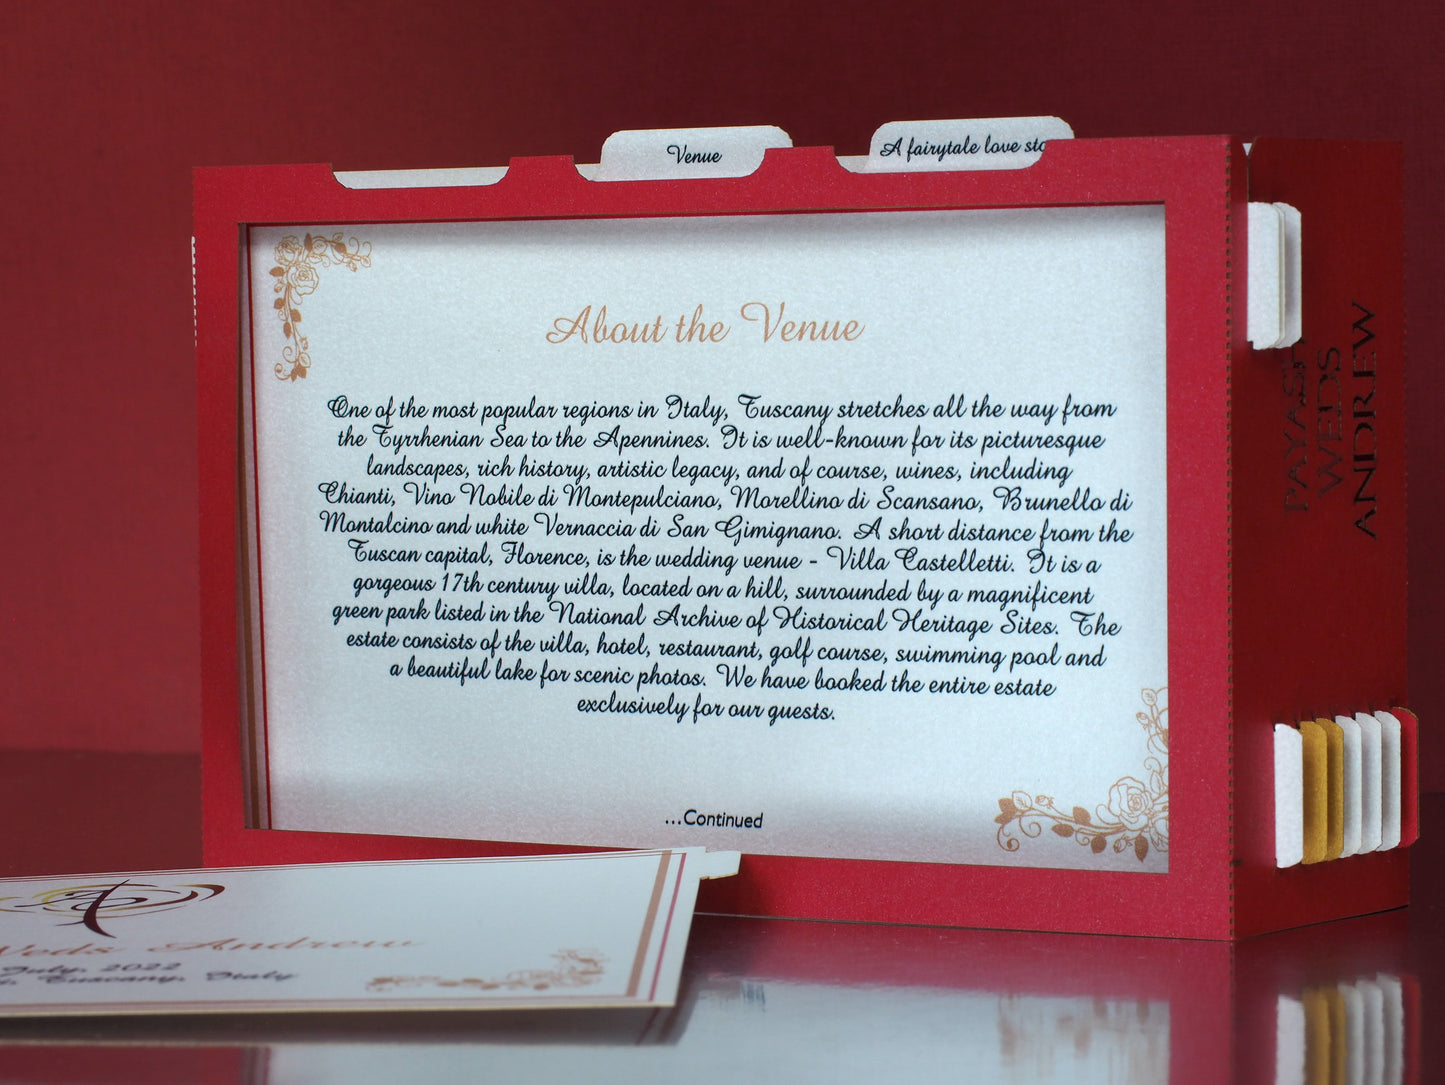 Venue
A fairytale love sto
About the Venue
One of the most popular regions in Italy, Tuscany stretches all the way from
the Tyrrhenian Sea to the Apennines. It is well-known for its picturesque
landscapes, rich history, artistic legacy, and of course, wines, including
Chianti, Vino Nobile di Montepulciano, Morellino di Scansano, Brunello di
Montalcino and white Vernaccia di San Gimignano. A short distance from the
Tuscan capital, Florence, is the wedding venue - Villa Castelletti. It is a
gorgeous 17th century villa, located on a hill, surrounded by a magnificent
green park listed in the National Archive of Historical Heritage Sites. The
estate consists of the villa, hotel, restaurant, golf course, swimming pool and
a beautiful lake for scenic photos. We have booked the entire estate
exclusively for our guests.
...Continued
PAYAS
WEDS
ANDREW
Weds Andrew
July, 2022
Tuscany, Italy